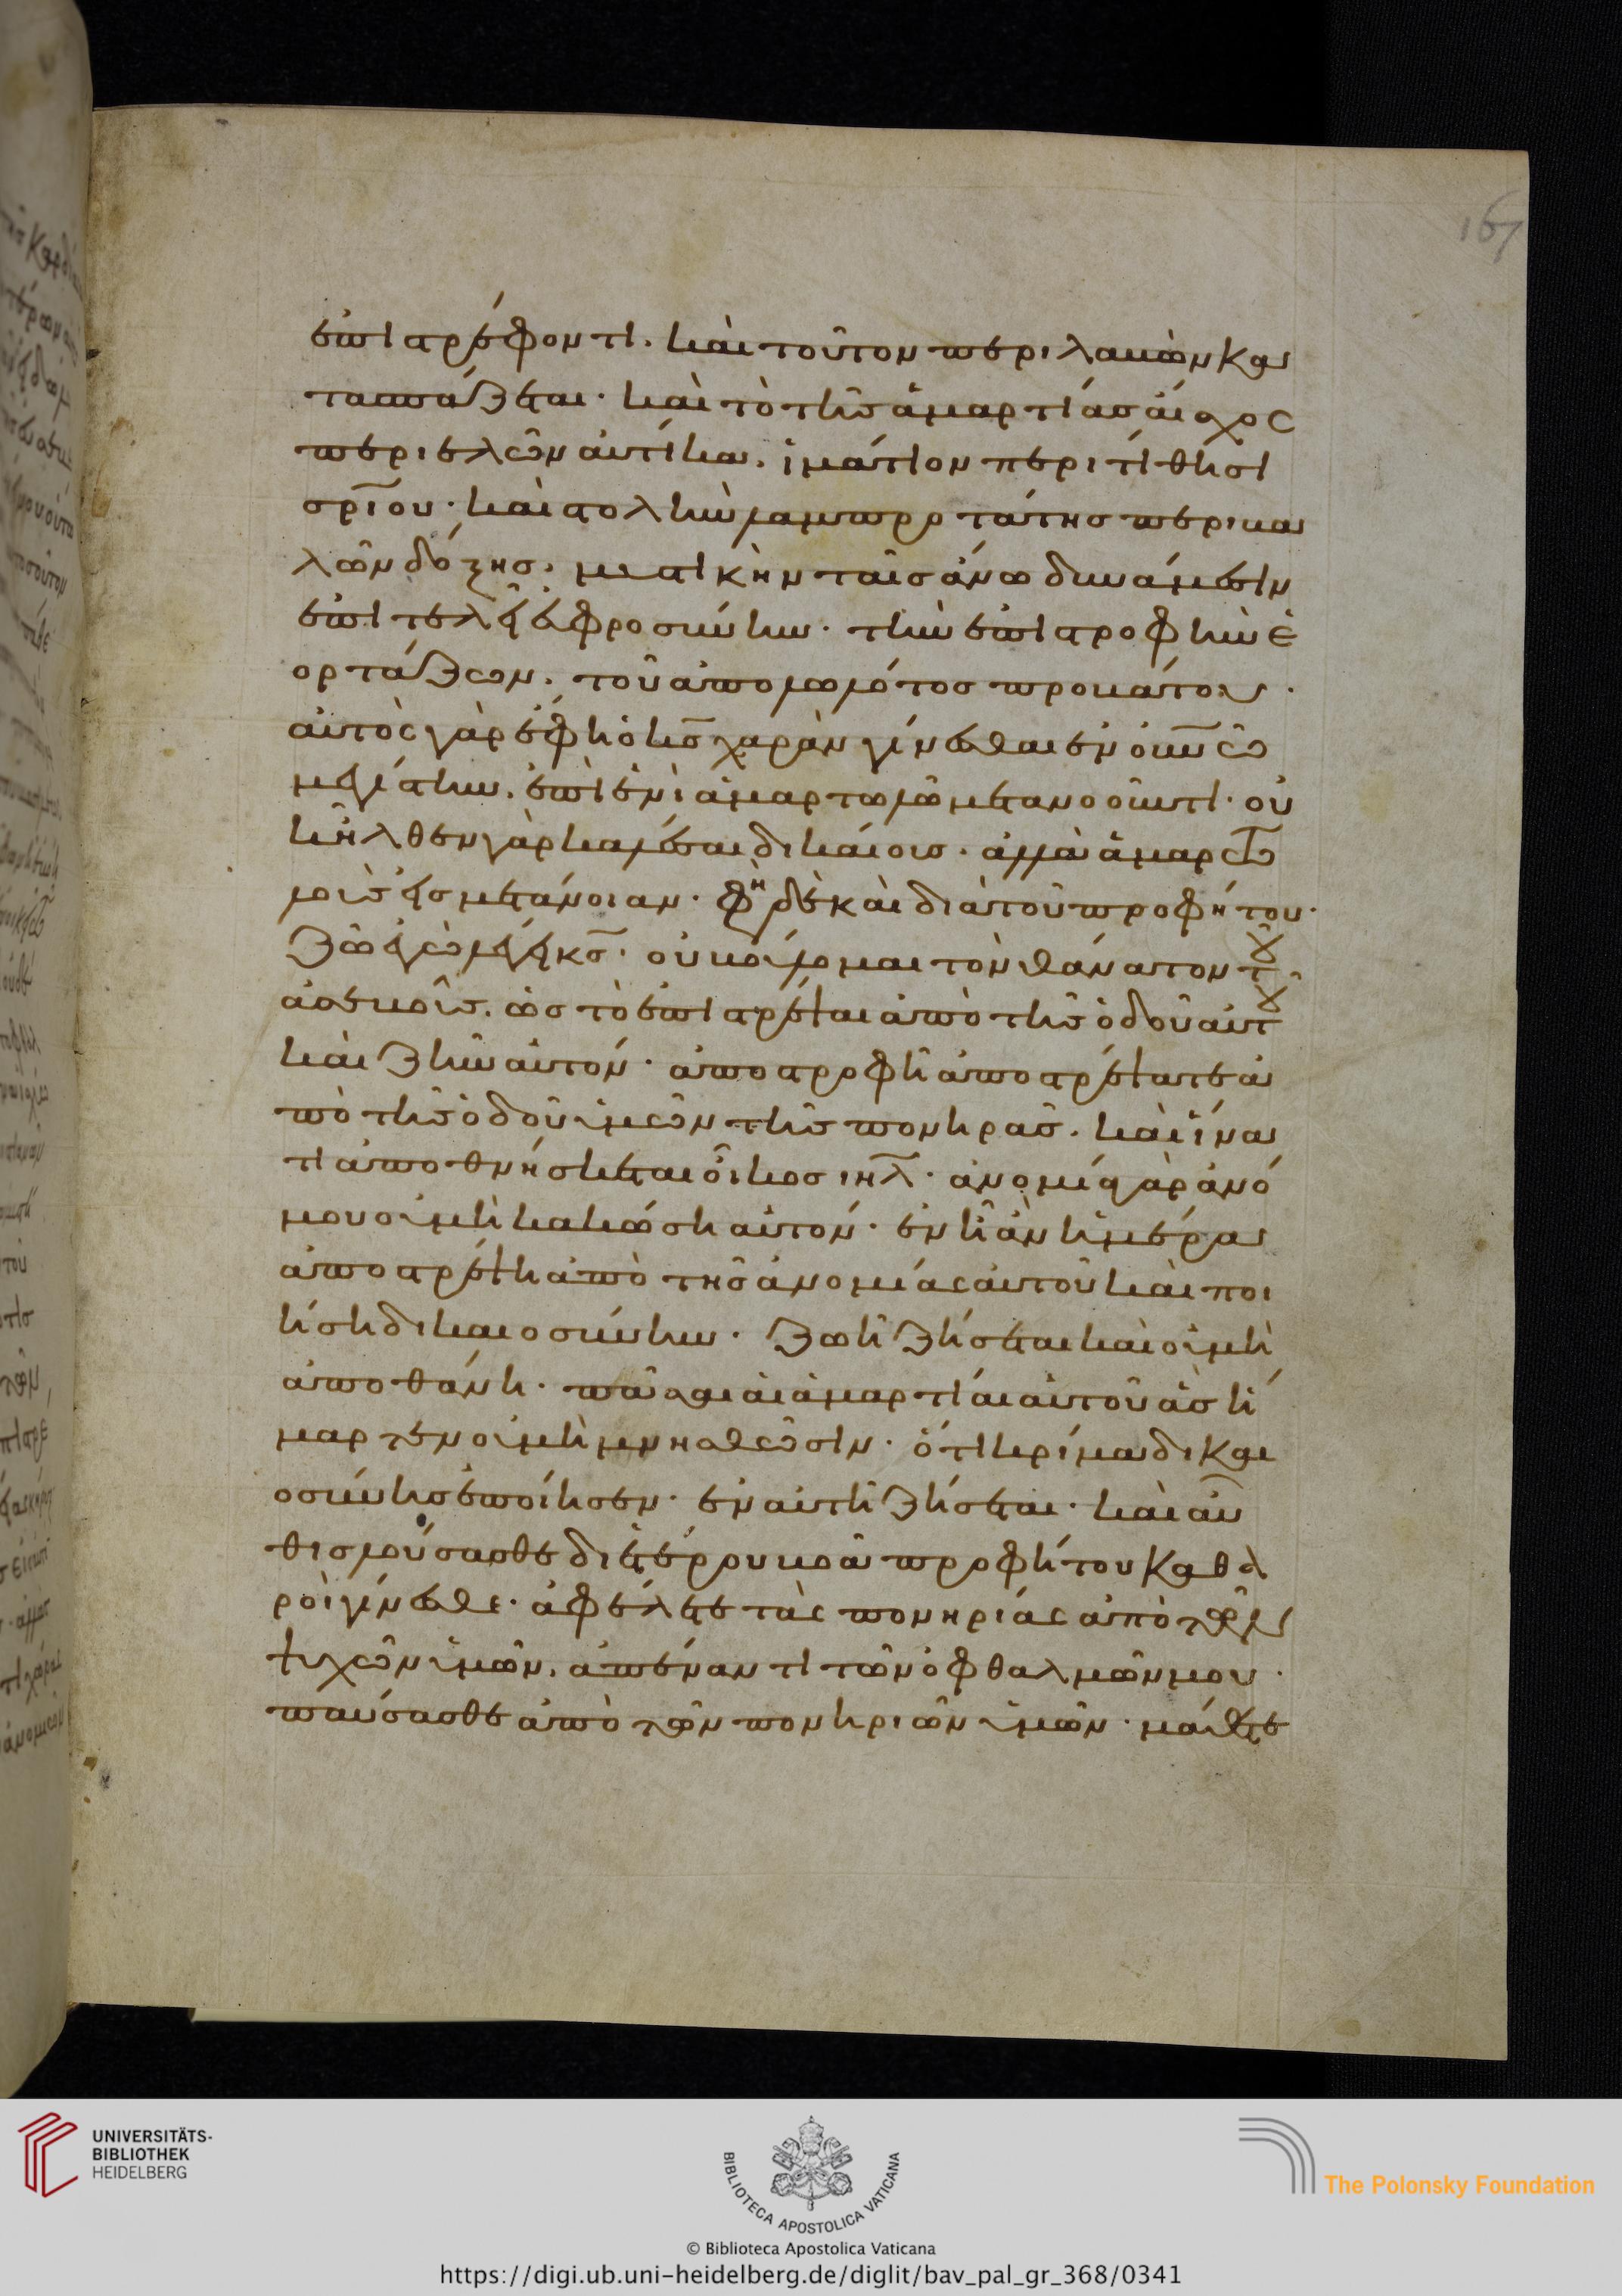 167
ἐπιστρέφοντι. καὶ τοῦτον περιλαβὼν κα
τασπάζεται· καὶ τὸ τῆς ἁμαρτίας αἶσχος
περιελὼν αὐτίκα. ἱμάτιον περιτίθησι
σρ̅ιου· καὶ στολὴν λαμπροτάτης περιβα
λὼν δόξης. μυστικὴν ταῖς ἄνω δυνάμεσιν
ἐπιτελεῖ εὐφροσύνην· τὴν ἐπιστροφὴν ἑ
ορτάζων. τοῦ ἀπολωλότος προβάτου·
αὐτὸς γὰρ ἔφη ὁ κ̅ς̅ χαρὰν γίνεσθαι ἐν ο̅υ̅ν̅ω̅
μεγίστην. ἐπὶ ἑνὶ ἁμαρτωλῷ μετανοοῦντι· οὐ
κ ἦλθεν γὰρ καλέσαι δικαίους. ἀλλὰ ἁμαρτω
λοὺς εἰς μετάνοιαν· φη δὲ καὶ διὰ τοῦ προφήτου·
ζῶ ἐγὼ λέγει κ̅ς̅· οὐ βούλομαι τὸν θάνατον τοῦ
ἀσεβοῦς. ὡς τὸ ἐπιστρέψαι ἀπὸ τῆς ὁδοῦ αὐτοῦ
καὶ ζῆν αὐτόν· ἀποστροφῆ ἀποστρέψατε ἀ
πὸ τῆς ὁδοῦ ὑμῶν τῆς πονηρᾶς. καὶ ἵνα
τί ἀποθνήσκεται οἶκος ι̅η̅λ̅· ἀνομία γὰρ ἀνό
μου οὐ μὴ κακώση αὐτόν· ἐν ᾗ ἂν ἡμέρα
ἀποστρέψη ἀπὸ τῆς ἀνομίας αὐτοῦ καὶ ποι
ήση δικαιοσύνην· ζωῆ ζήσεται καὶ οὐ μὴ
ἀποθάνη· πᾶσαι αἱ ἁμαρτίαι αὐτοῦ ἃς ἥ
μαρτεν οὐ μὴ μνησθῶσιν· ὅτι κρίμα δικαι
οσύνης ἐποίησεν· ἐν αὐτῆ ζήσεται· καὶ αὖ
θις λούσασθε δι ἑτέρου βοᾶ προφήτου καθα
ροὶ γίνεσθε· ἀφέλετε τὰς πονηρίας ἀπὸ τῶν
ψυχῶν ὑμῶν. ἀπέναντι τῶν ὀφθαλμῶν μου·
παύσασθε ἀπὸ τῶν πονηριῶν ὑμῶν· μάθετε
UNIVERSITÄTS-
BIBLIOTHEK
HEIDELBERG
BIBLIOTECA APOSTOLICA VATICANA
The Polonsky Foundation
© Biblioteca Apostolica Vaticana
https://digi.ub.uni-heidelberg.de/diglit/bav_pal_gr_368/0341